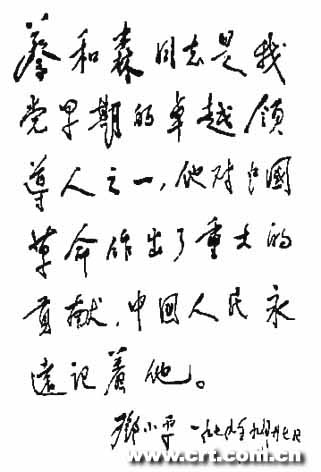 蔡和森同志是我
党早期的卓越领
导人之一,他对中國
革命作出了重大的
貢献,中国人民永
遠記着他。
鄧小平 一九七九年九月廿七日
www.crt.com.cn